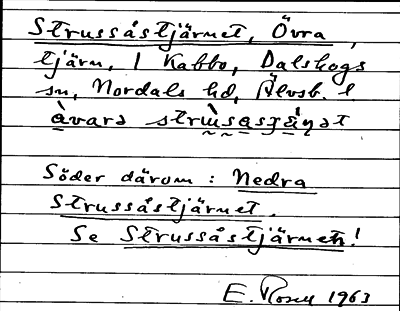 Strussåstjärnet, Övra,
tjärn, i Kabbo, Dalskogs
sn, Nordals hd, Älvsb. l
Söder därom: Nedra
Strussåstjärnet.
Se Strussåstjärnen!
E. Rosell 1963